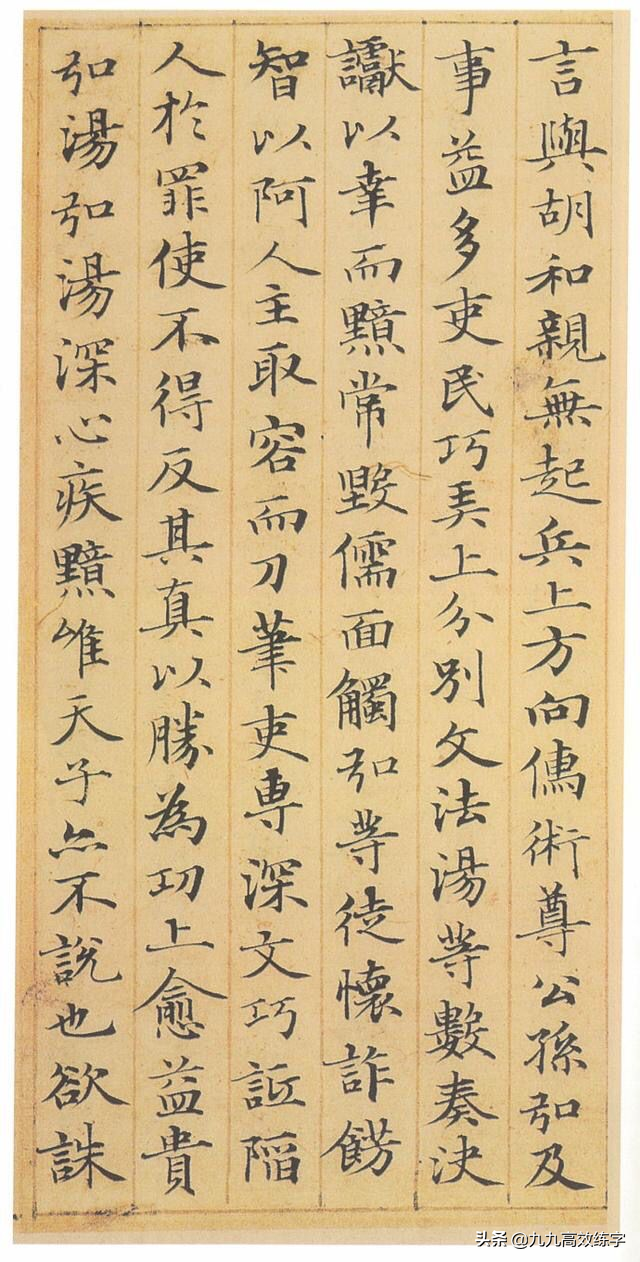 言與胡和親無起兵上方向儁術尊公孫弘及
事益多吏民巧弄上分別文法湯等數奏決
讞以幸而黯常毀儒面觸弘等徒懷詐飾
智以阿人主取容而刀筆吏專深文巧詆陷
人於罪使不得反其真以勝為功上愈益貴
弘湯弘湯深心疾黯雖天子亦不說也欲誅
头条 @九九高效练字